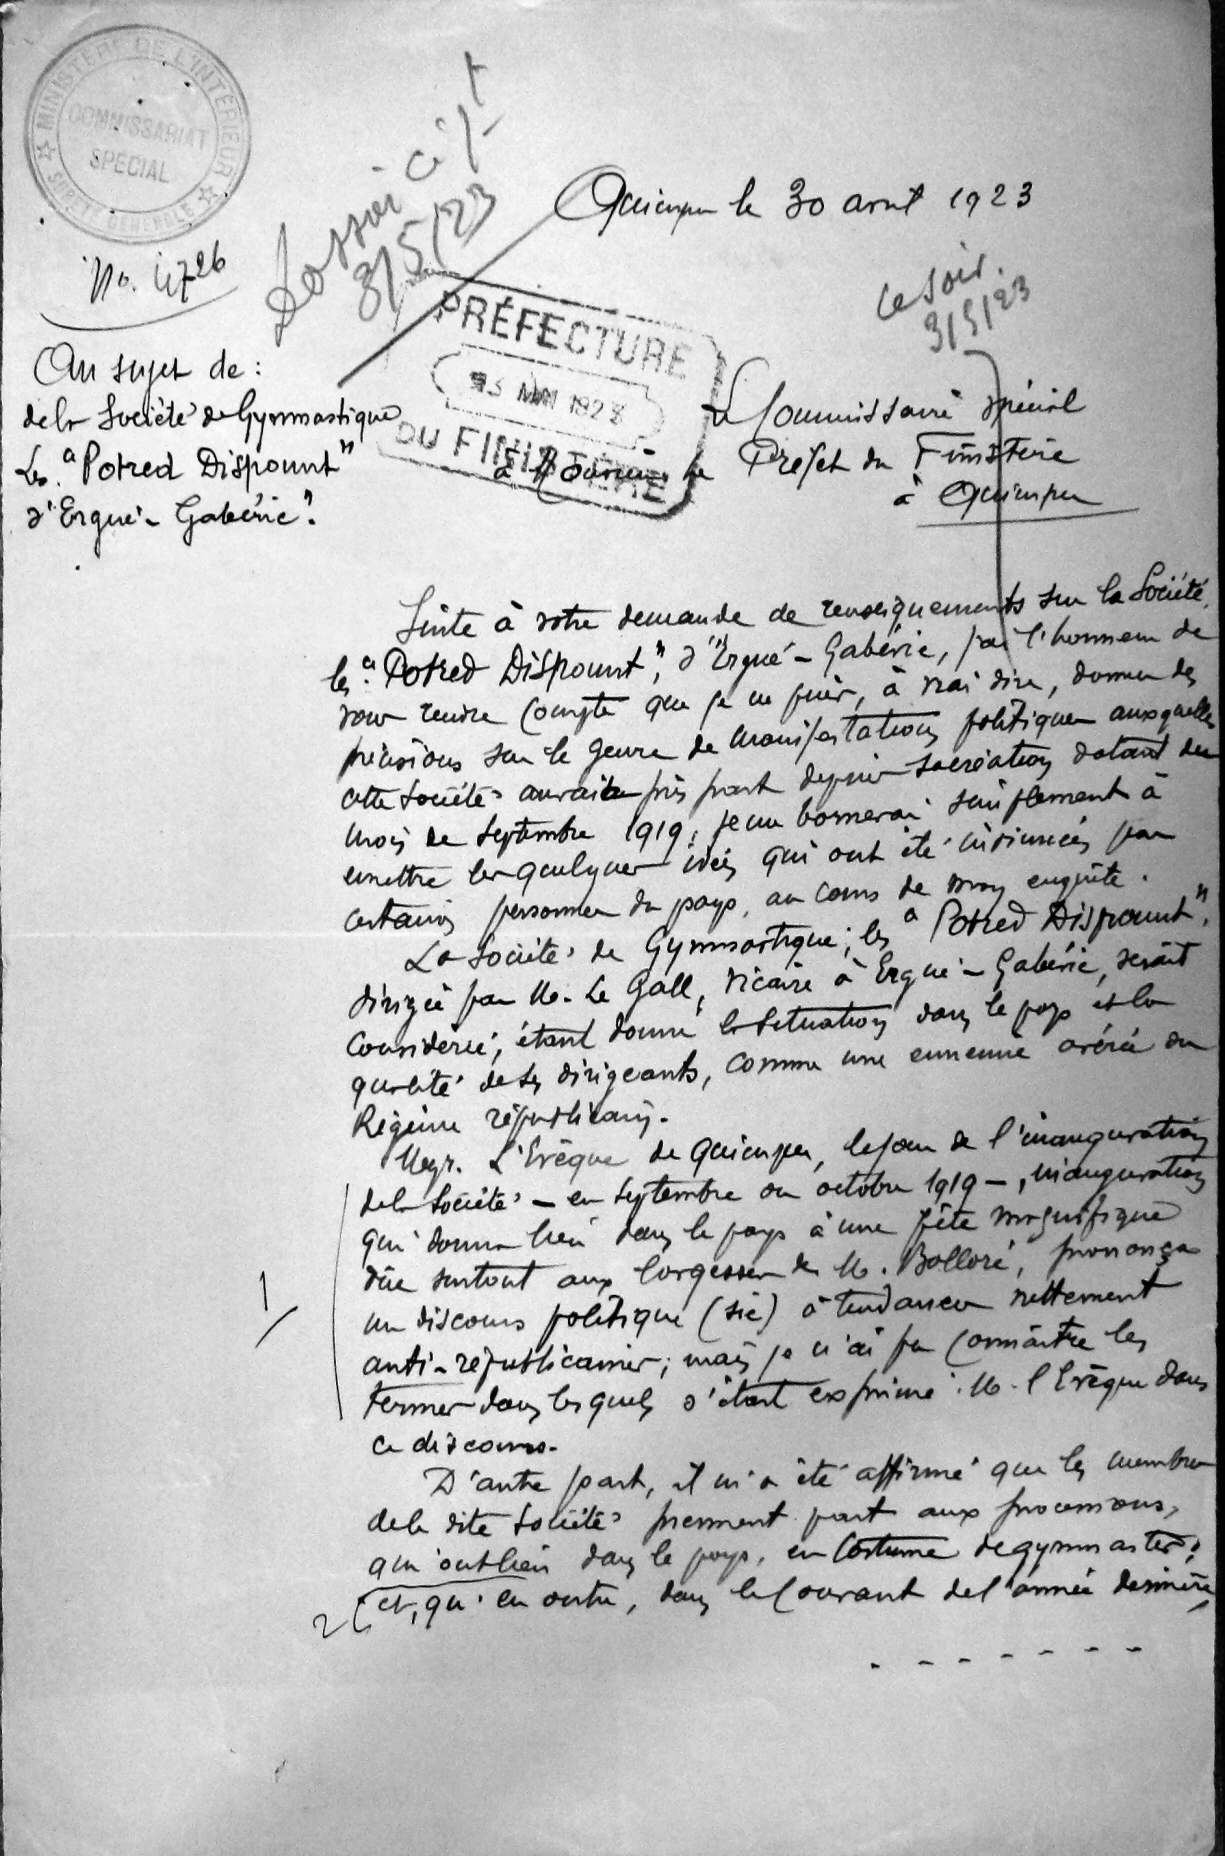 MINISTÈRE DE L'INTÉRIEUR
COMMISSARIAT
SPÉCIAL
SURETÉ GÉNÉRALE
No. 4726
Dossier ci jt
8/5/23
Quimper le 30 avril 1923
ce soir.
3/5/23
PRÉFECTURE
3 MAI 1923
DU FINISTÈRE
Au sujet de :
de la Société de Gymnastique
Les "Potred Dispount"
d'Ergué-Gabéric".
Le Commissaire spécial
à Monsieur le Préfet du Finistère
à Quimper
Suite à votre demande de renseignements sur la Société,
les "Potred Dispount", d'Ergué-Gabéric, j'ai l'honneur de
vous rendre compte que je ne puis, à vrai dire, donner des
précisions sur le genre de manifestations politiques auxquelles
cette Société aurait pris part depuis sa création datant du
mois de Septembre 1919; je me bornerai simplement à
émettre les quelques idées qui ont été insinuées par
certaines personnes du pays, au cours de mon enquête.
La Société de Gymnastique; les "Potred Dispount".
dirigée par M. Le Gall, vicaire à Ergué-Gabéric, serait
considérée, étant donné la situation dans le pays et la
qualité de ses dirigeants, comme une ennemie avérée du
Régime républicain.
Mgr. L'Evêque de Quimper, le jour de l'inauguration
de la Société - en Septembre ou octobre 1919 -, inauguration
qui donna lieu dans le pays à une fête magnifique
dûe surtout aux largesses de M. Bolloré, prononça
un discours politique (sic) à tendances nettement
1/
anti-républicaines; mais je n'ai pu connaître les
termes dans lesquels s'était exprimé M. l'Evêque dans
ce discours.
D'autre part, il m'a été affirmé que les membres
de la dite Société prennent part aux processions,
qui ont lieu dans le pays, en Costume de gymnastes;
2 (et, qu'en outre, dans le Courant de l'année dernière,
. - - - - - -